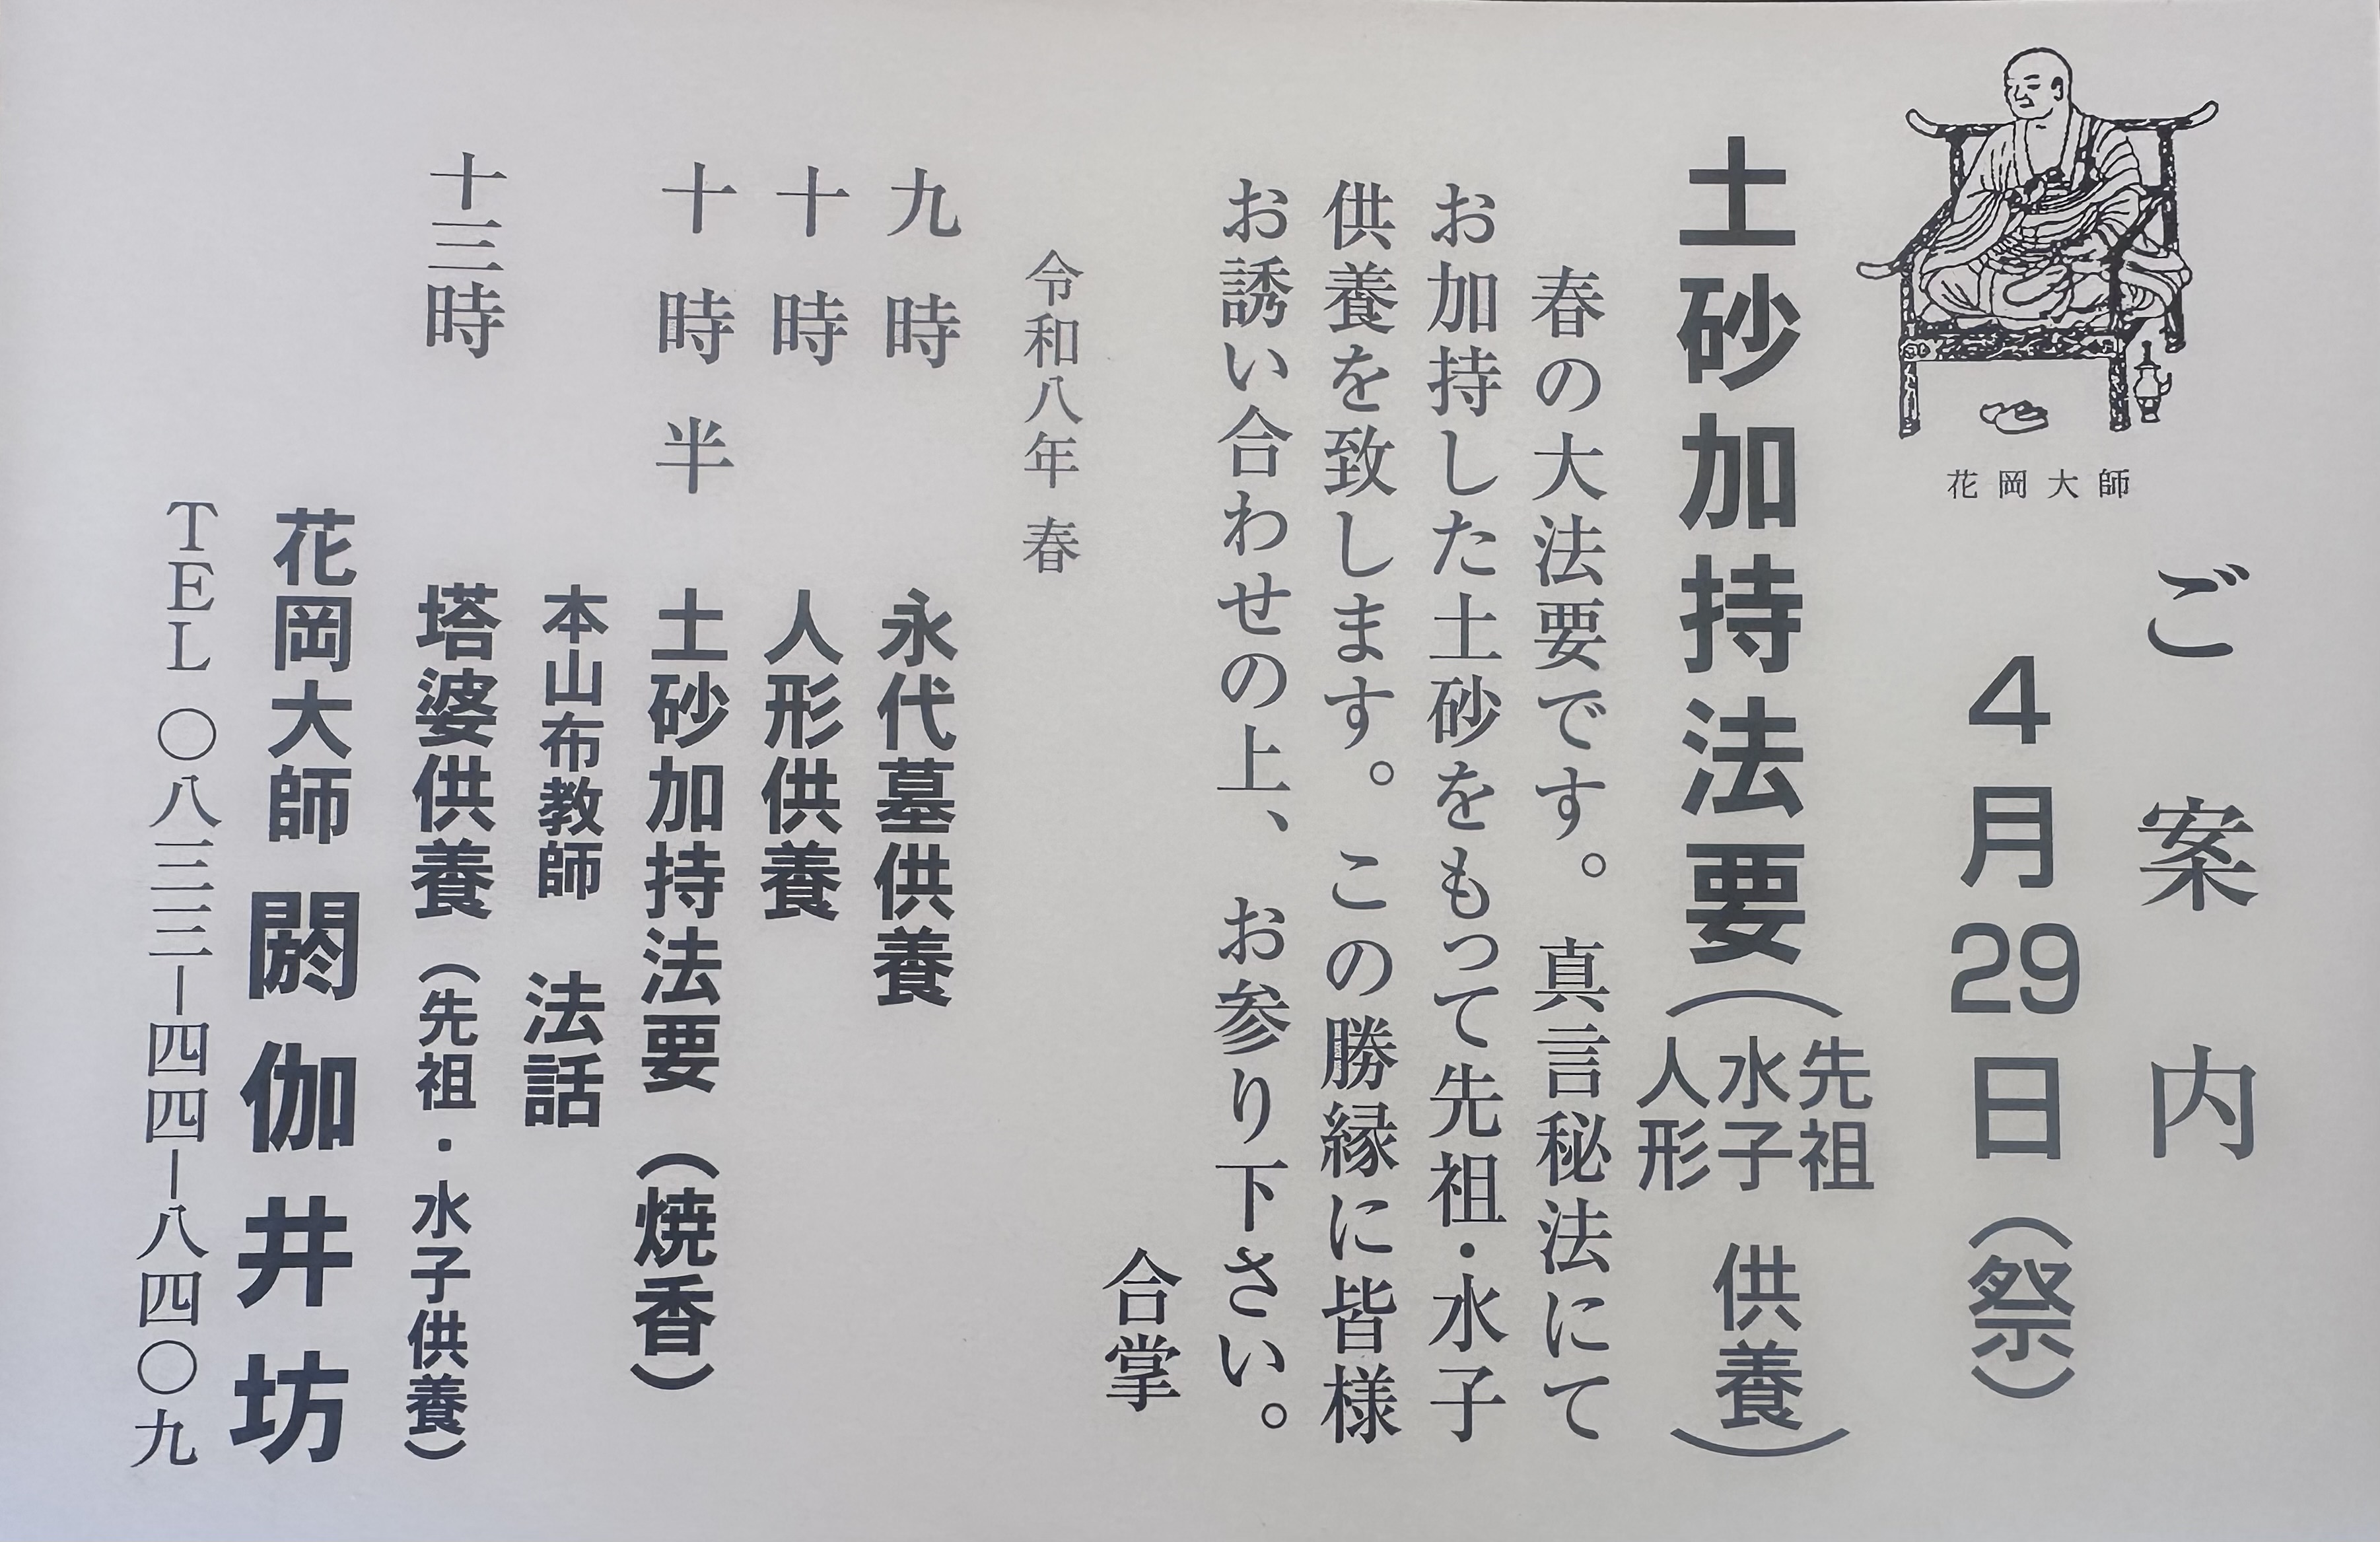 ご案内
花岡大師
4月29日（祭）
土砂加持法要（先祖 水子 人形 供養）
春の大法要です。真言秘法にて
お加持した土砂をもって先祖・水子
供養を致します。この勝縁に皆様
お誘い合わせの上、お参り下さい。
合掌
令和八年 春
九時 永代墓供養
十時 人形供養
十時半 土砂加持法要（焼香）
本山布教師 法話
十三時 塔婆供養（先祖・水子供養）
花岡大師 閼伽井坊
TEL 〇八三三―四四―八四〇九